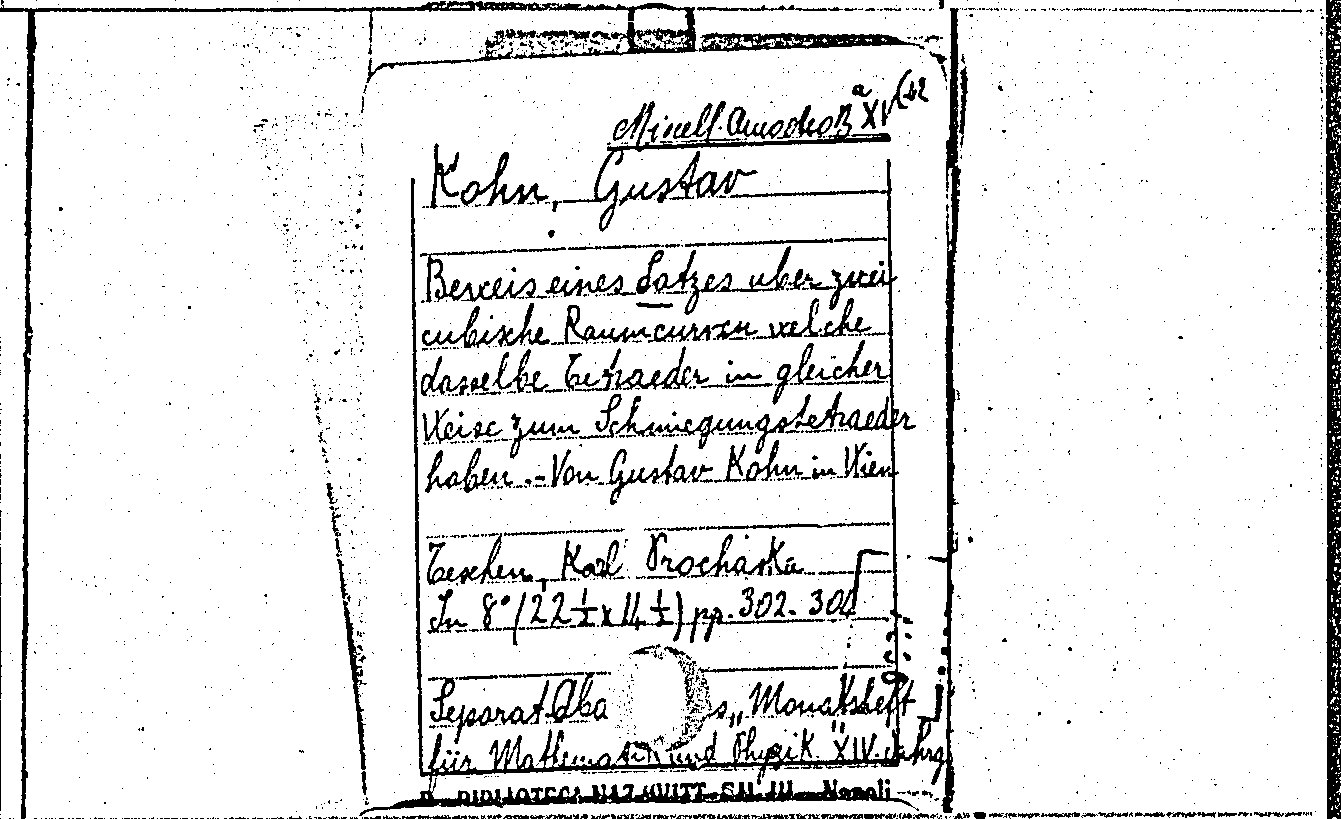 Miscell. Amodeo B XV a (42
Kohn, Gustav
Beweis eines Satzes uber zwei
cubische Raumcurven welche
dasselbe Tetraeder in gleicher
Weise zum Schmiegungstetraeder
haben .- Von Gustav Kohn in Wien
Teschen, Karl Prochaska
In 8° (22 ½ x 14 ½) pp. 302-304
Separat Aba s „Monatsheft
für Mathematik und Physik." XIV. Jahrg
R. BIBLIOTECA NAZ. VITT. EM. III. - Napoli